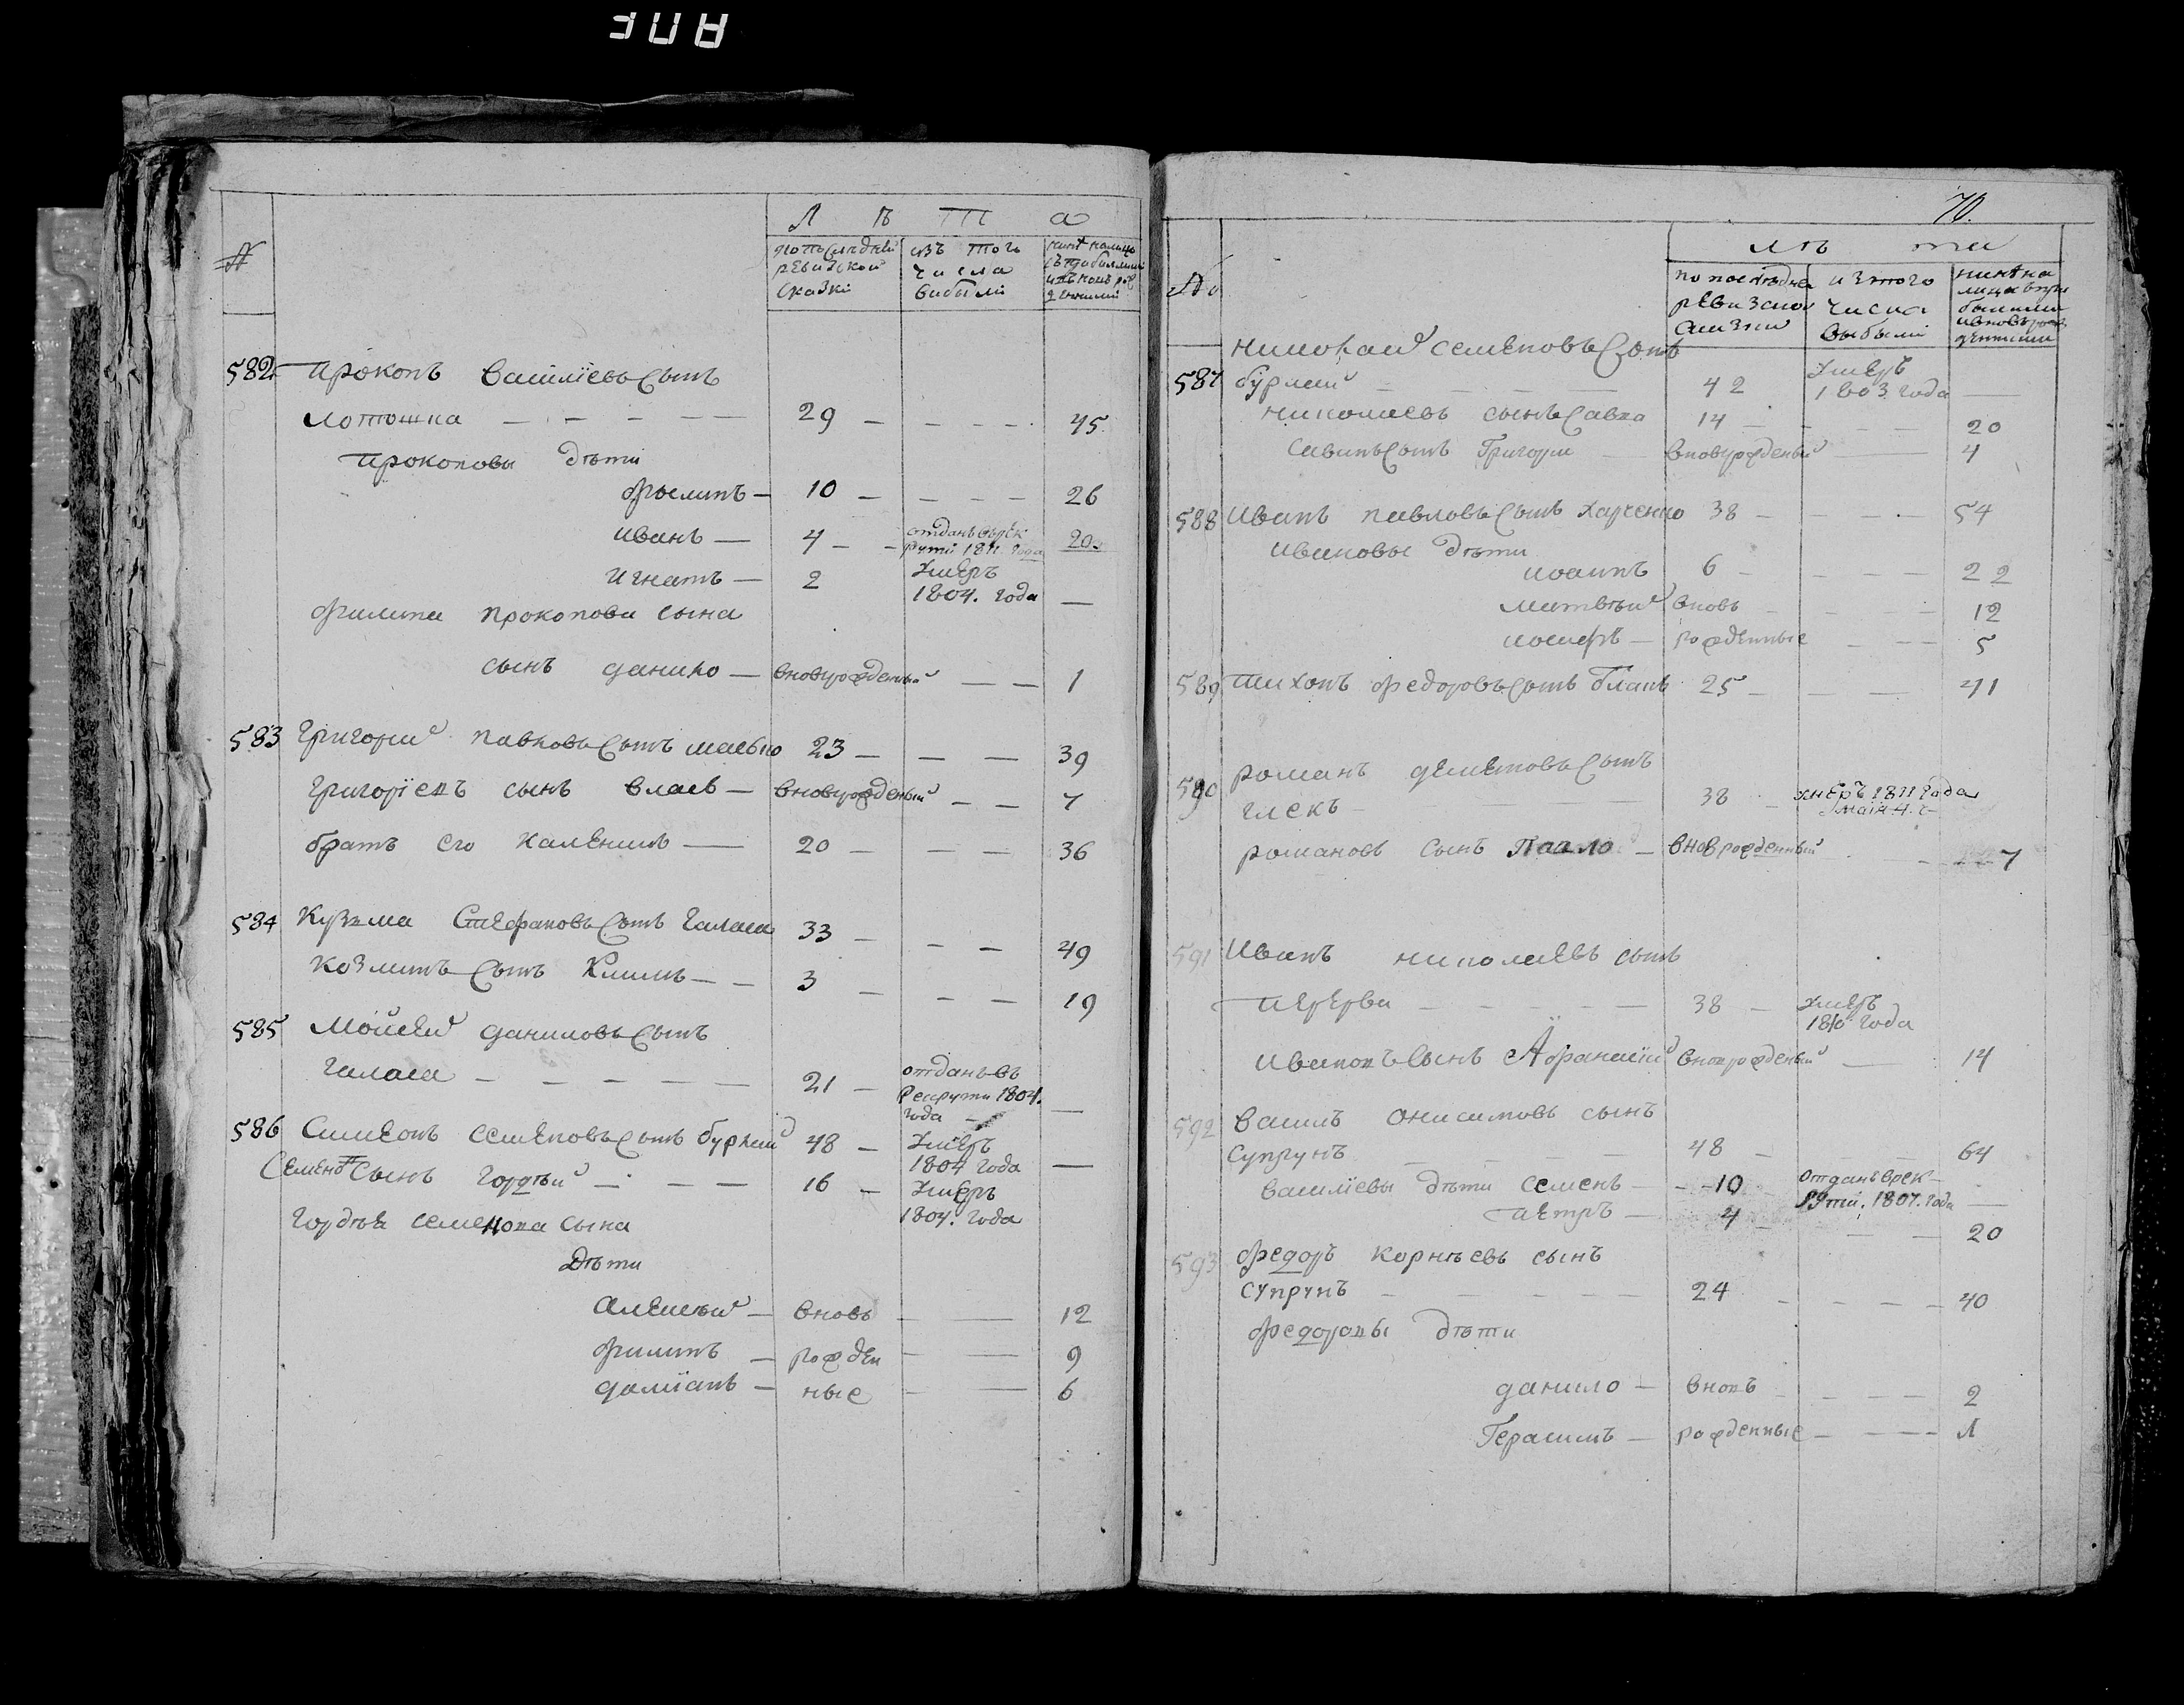 №
Л ѣ т а
по последней ревизской сказки
изъ того числа выбыли
582 Прокопъ Василіевъ Сынъ
Лотошка — — — — 29 — — — — 45
Прокоповы дѣти
Филипъ — 10 — — — — 26
Иванъ — 4 — — отданъ въ рек
рути 1811. года 20.
Игнатъ — 2 Умеръ
1804. года —
Филипа Прокопова сына
сынъ данило — вновурожденый — — 1
583 Григорий Павловъ Сынъ 23 — — — 39
Григоріевъ сынъ влась — вновурожденый — — 7
братъ его Каленикъ — 20 — — — 36
584 Кузма Стефановъ Сынъ Галага 33 — — — 49
Козминъ Сынъ Климъ — — 3 — — — 19
585 Мойсей даниловъ Сынъ
Галага — — — — — 21 — отданъ въ
Рекрути 1804.
года — —
586 Симеонъ Семеновъ Сынъ бурлий 48 — Умеръ
1804 года —
Семеновъ Сынъ Гордѣй — — — 16 — Умеръ
1804. года
Гордѣя Семенова Сына
Дѣти
Алексѣй — вновь — — 12
Филипъ — рожден — — 9
даміанъ — ные — — 6
70.
№
Л ѣ та
по последней ревизской сказки
и з того числа выбыли
Николай Семеновъ Сынъ
587 бурлий — — — — 42 Умеръ
1803. года —
Николаевъ сынъ Савва 14 — — — — 20
Савинъ Сынъ Григорий — вновурожденый — 4
588 Иванъ Павловъ Сынъ Харченко 38 — — — 54
Ивановы дѣти
Иоанъ 6 — — — — 22
Матвѣй вновь — — — — 12
Иосифъ — рожденные — — 5
589 Тихонъ Федоровъ Сынъ 25 — — — 41
590 Романъ дементовъ Сынъ
Глекъ — — 38 — умеръ 1811 года
маія 4. г —
Романовъ Сынъ Павло — вноврожденный — 7
591 Иванъ Николаевъ сынъ
Перерва — — — — — 38 — умеръ
1810 года
Ивановъ Сынъ Афанасий вновурожденый — 14
592 Василь Онисимовъ сынъ
Супрунъ — — — — 48 — — — 64
Василіевы дѣти Семенъ — — 10 отданъ в рек —
рути. 1807. года —
Петръ — 4 — — — 20
593 Федоръ Корнѣевъ сынъ
Супрунъ — — — — — 24 — — — — 40
Федоровы дѣти
данило — вновъ — — — — 2
Герасимъ — рожденные — — — —